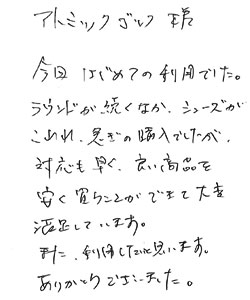 アトミックゴルフ 様
今回 はじめての利用でした。
ラウンドが続くなか、シューズが
こわれ、急ぎの購入でしたが、
対応も早く、良い商品を
安く買うことができて大変
満足しています。
また、利用したいと思います。
ありがとうございました。